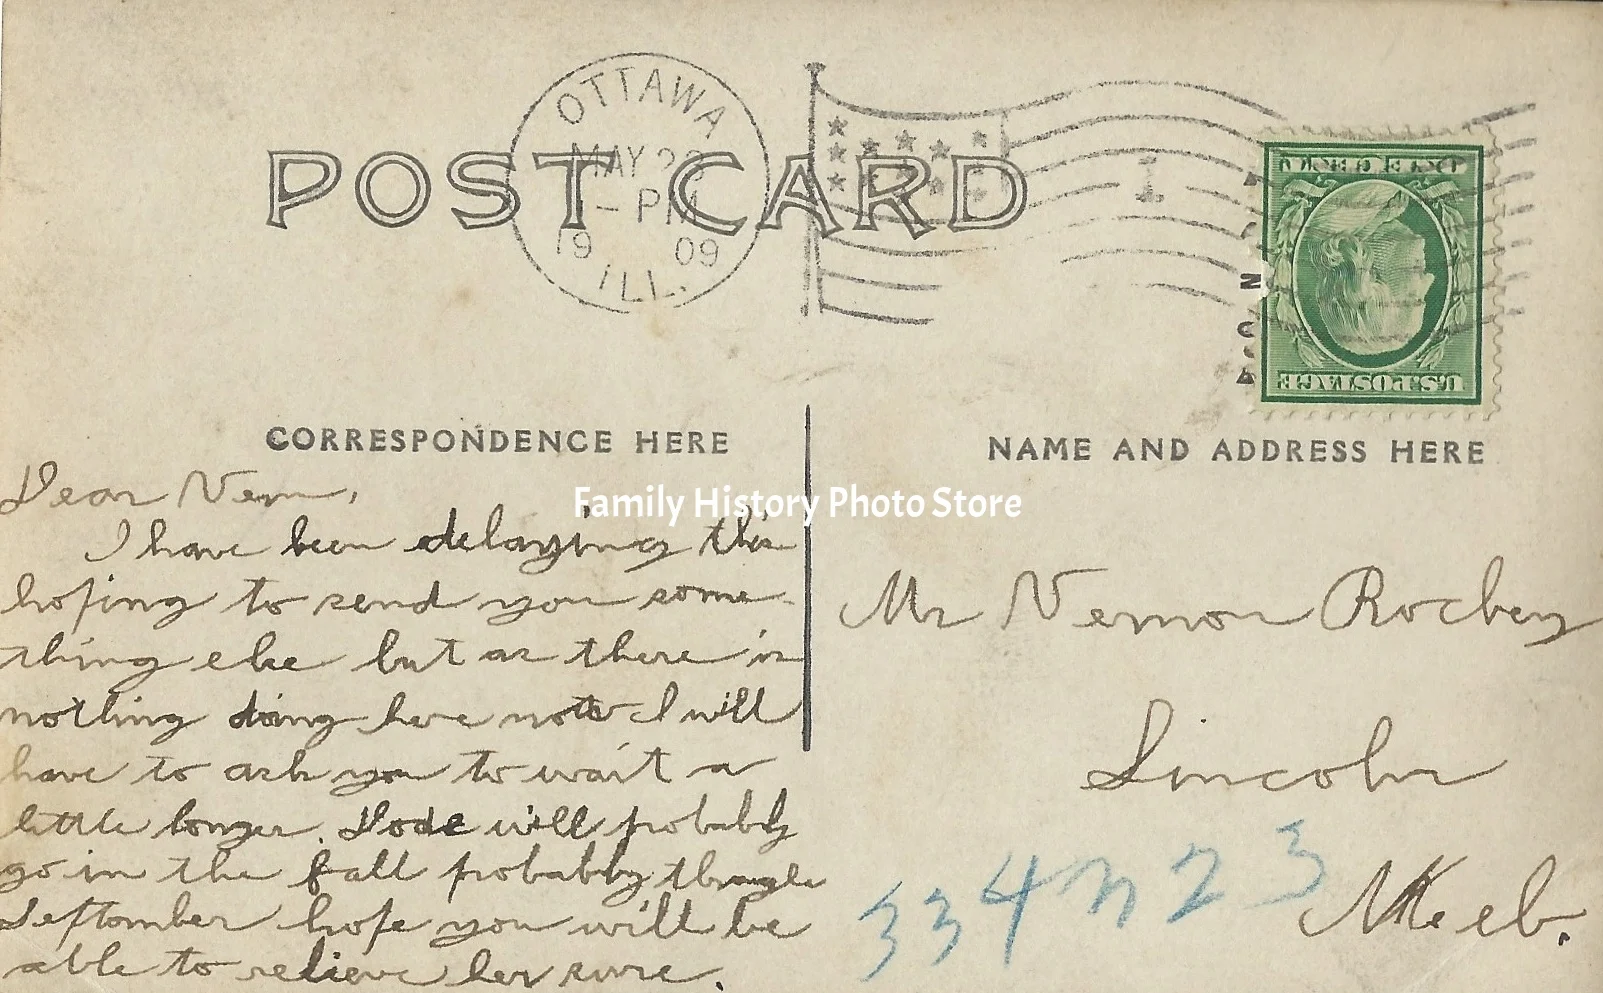 OTTAWA
MAY 2
- PM
19 09
ILL.
1
POST CARD
U.S. POSTAGE
CORRESPONDENCE HERE
NAME AND ADDRESS HERE
Family History Photo Store
Dear Vern,
I have been delaying this
hoping to send you some-
thing else but as there is
nothing doing here I will
have to ask you to wait a
little longer. Dode will probably
go in the fall probably through
September hope you will be
able to relieve her sure.
Mr Vernon Rockey
Lincoln
Neb.
334 N 23